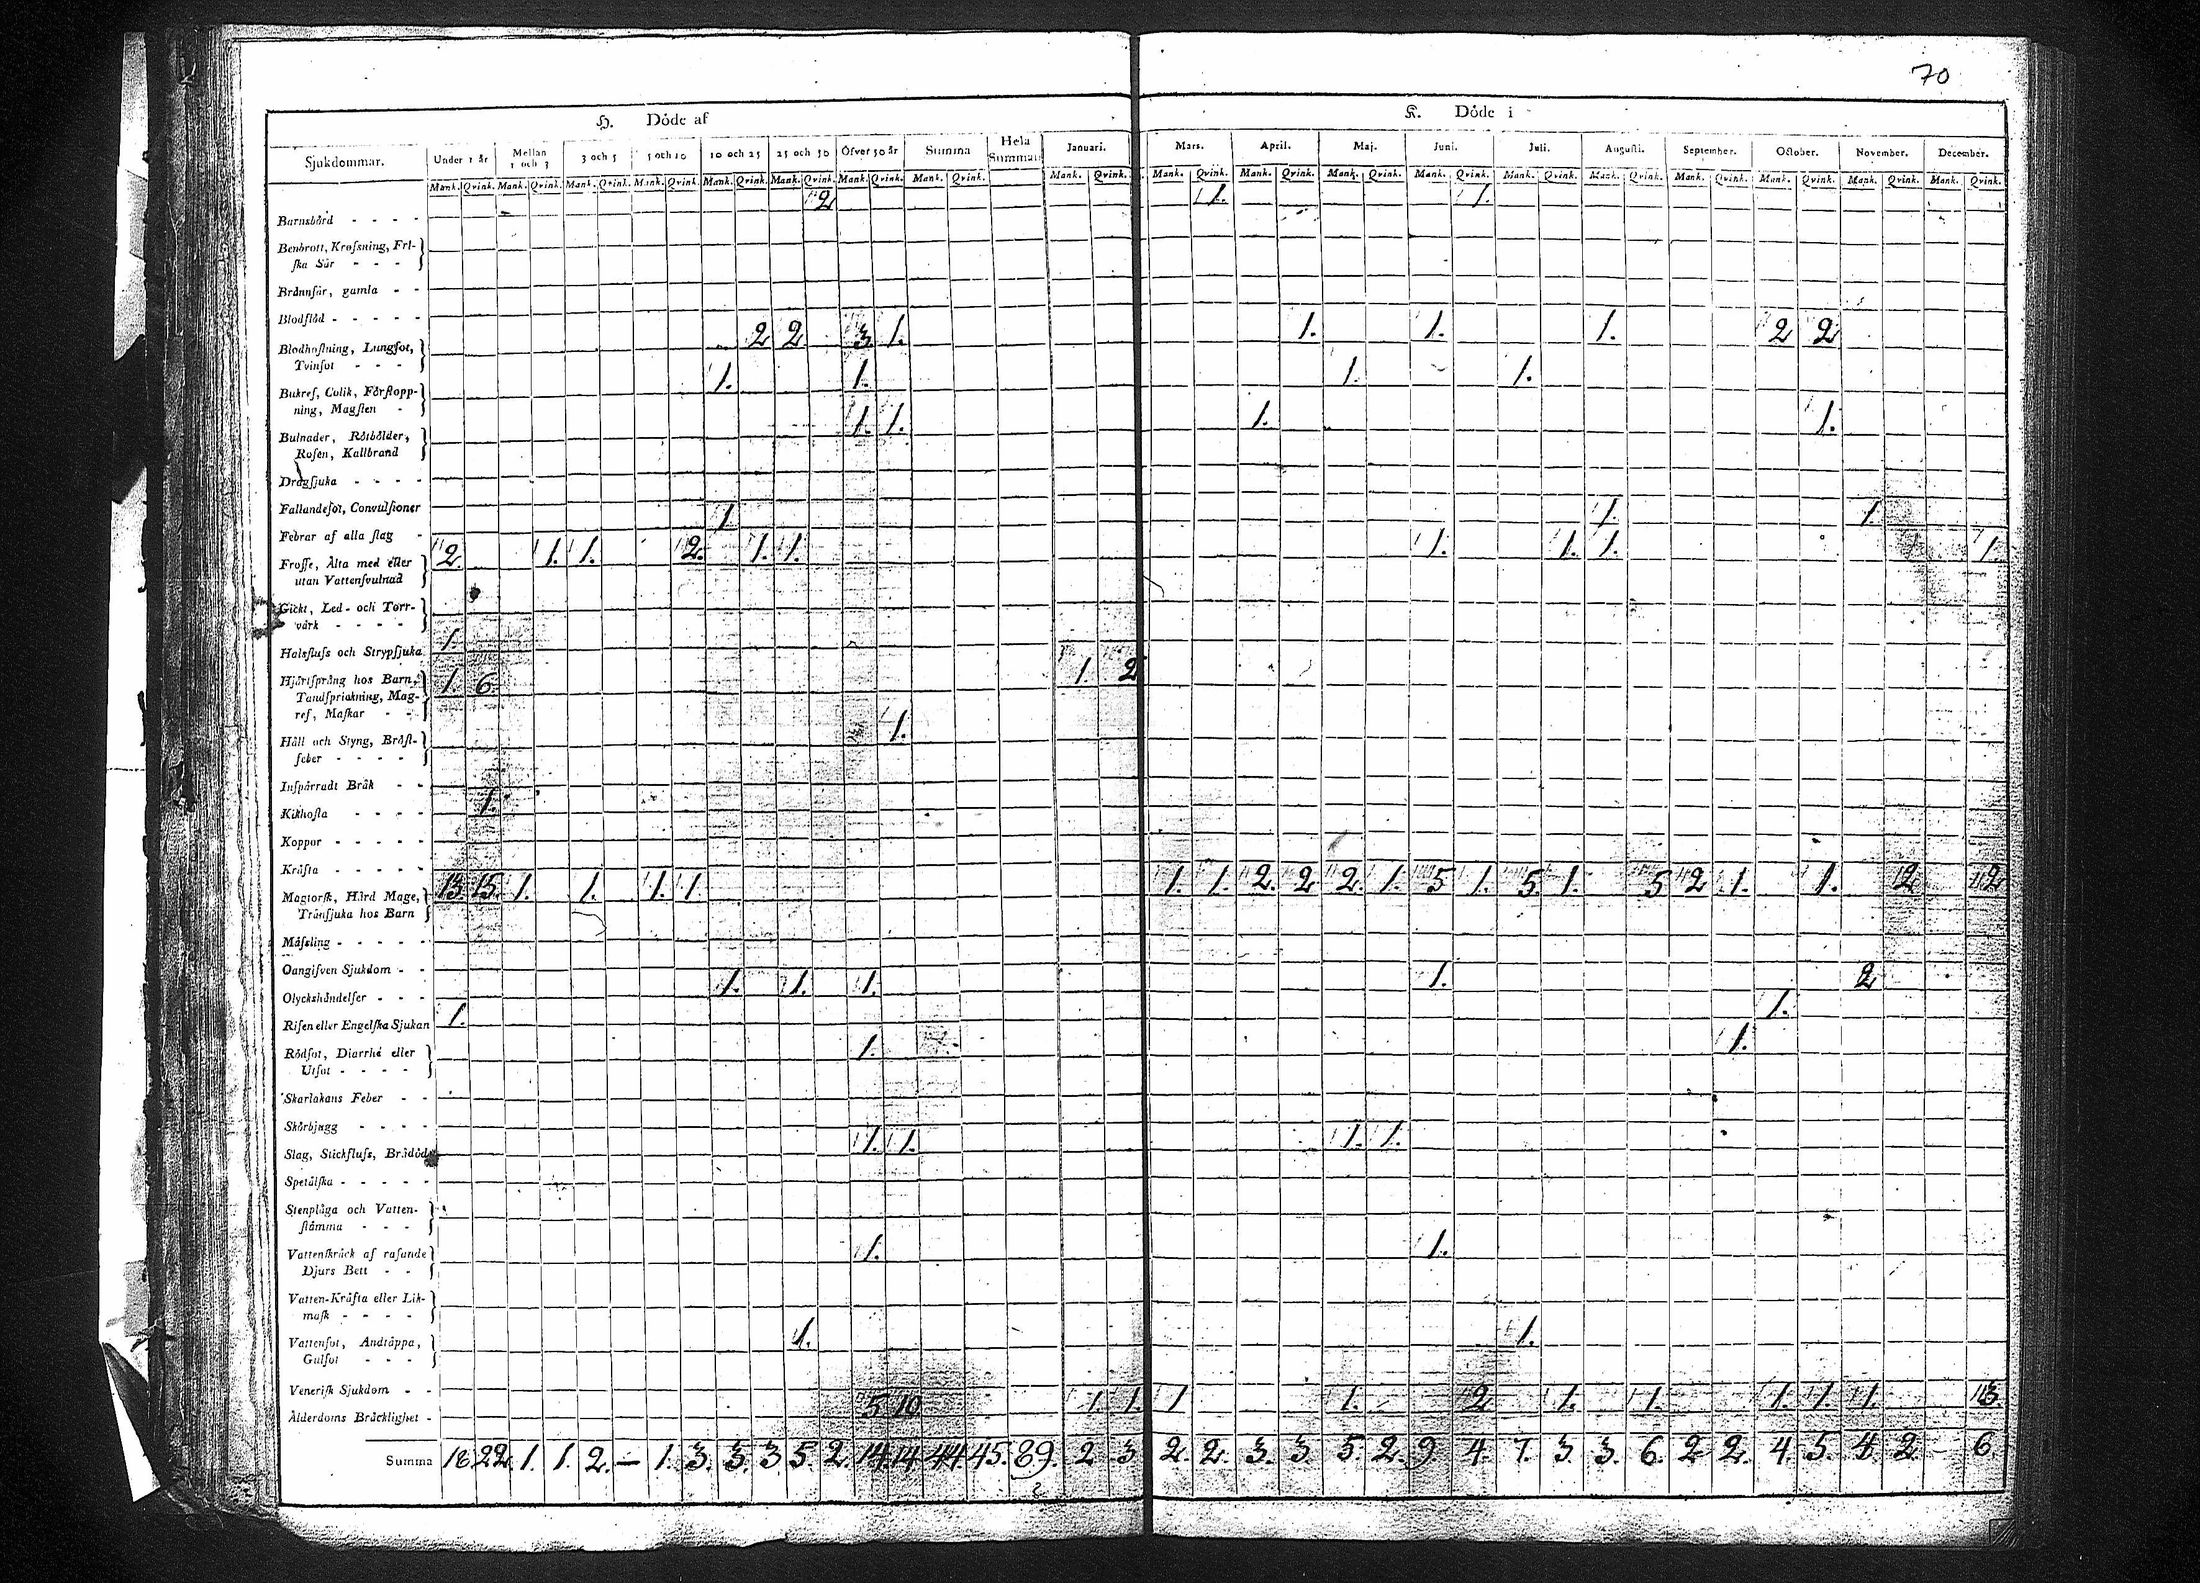 70
H. Döde af
K. Döde i
Sjukdommar. Under 1 år Mellan 1 och 3 3 och 5 5 och 10 10 och 25 25 och 50 Öfver 50 år Summa Hela Summan Januari. Mars. April. Maj. Juni. Juli. Augusti. September. October. November. December.
Mank. Qvink. Mank. Qvink. Mank. Qvink. Mank. Qvink. Mank. Qvink. Mank. Qvink. Mank. Qvink. Mank. Qvink. Mank. Qvink. Mank. Qvink. Mank. Qvink. Mank. Qvink. Mank. Qvink. Mank. Qvink. Mank. Qvink. Mank. Qvink. Mank. Qvink. Mank. Qvink. Mank. Qvink.
2 1. 1.
Barnsbörd - - - -
Benbrott, Krofsning, Fri-
ſka Sår - - -
Brännſår, gamla - -
Blodflöd - - - - -
2 2 3 1. 1. 1. 1. 2 2
Blodhoſtning, Lungſot,
Tvinſot - - -
1. 1. 1. 1.
Bukref, Colik, Förſtopp-
ning, Magſten -
1. 1. 1. 1.
Bulnader, Rötbölder,
Roſen, Kallbrand
Dragſjuka - - - -
Fallandeſot, Convulſioner
1 1. 1.
Febrar af alla ſlag -
2. 1. 1. 2. 1. 1. 1. 1. 1. 1.
Froſſe, Älta med eller
utan Vattenſvulnad
Gickt, Led- och Torr-
värk - - - -
1.
Halsfluſs och Strypſjuka
1. 6. 1. 2
Hjärtſprång hos Barn,
Tandſprickning, Mag-
ref, Maſkar - -
1.
Håll och Styng, Bröſt-
feber - - - -
Inſpärradt Bråk - -
1.
Kikhoſta - - - -
Koppor - - - - -
Kräfta - - - - -
13 15. 1. 1. 1. 1 1. 1. 2. 2 2. 1. 5 1. 5. 1. 5 2 1. 1. 2 2
Magtorſk, Hård Mage,
Tränſjuka hos Barn
Måſsling - - - - -
Oangifven Sjukdom - -
1. 1. 1. 1. 2
Olyckshändelſer - - -
1. 1.
Riſen eller Engelſka Sjukan
1. 1.
Rödſot, Diarrhé eller
Utſot - - - -
Skarlakans Feber - -
Skörbjugg - - - -
1. 1. 1. 1.
Slag, Stickfluſs, Brådöd
Spetälſka - - - - -
Stenplåga och Vatten-
ſtämma - - -
1. 1.
Vattenſkräck af raſande
Djurs Bett - -
Vatten-Kräfta eller Lik-
maſk - - - -
1. 1.
Vattenſot, Andtäppa,
Gulſot - - -
Veneriſk Sjukdom - -
5 10 1 1. 1 1. 2 1. 1. 1. 1. 1. 3
Ålderdoms Bräcklighet -
Summa 18. 22. 1. 1. 2. — 1. 3. 3. 3. 5. 2. 14. 14 44 45. 89. 2 3. 2. 2. 3. 3. 5. 2. 9. 4. 7. 3. 3. 6. 2 2. 4. 5. 4. 2. 6.